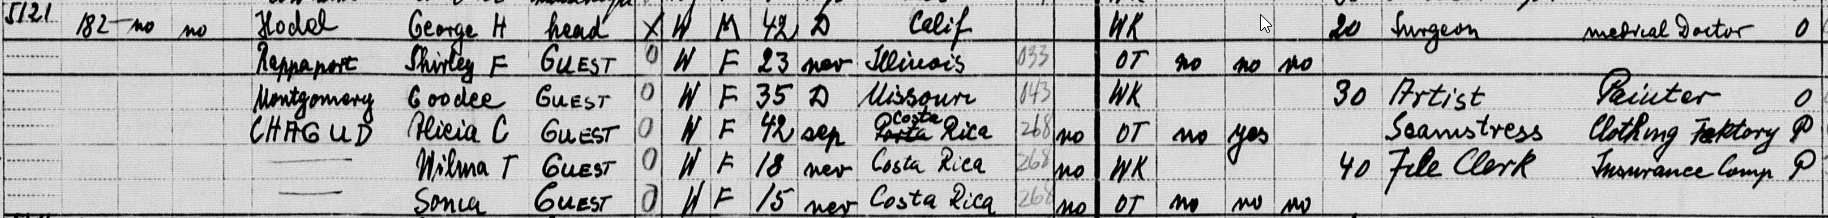 5121 182 no no Hodel George H head X W M 42 D Calif WK 20 Surgeon medical Doctor O
Rappaport Shirley F GUEST 0 W F 23 nev Illinois 033 OT no no no
Montgomery Goodee GUEST 0 W F 35 D Missouri 043 WK 30 Artist Painter O
CHAGUD Alicia C GUEST 0 W F 42 sep Costa Rica 268 no OT no yes Seamstress Clothing Faktory P
— Wilma T GUEST 0 W F 18 nev Costa Rica 268 no WK 40 File Clerk Insurance Comp P
— Sonia GUEST 0 W F 15 nev Costa Rica 268 no OT no no no